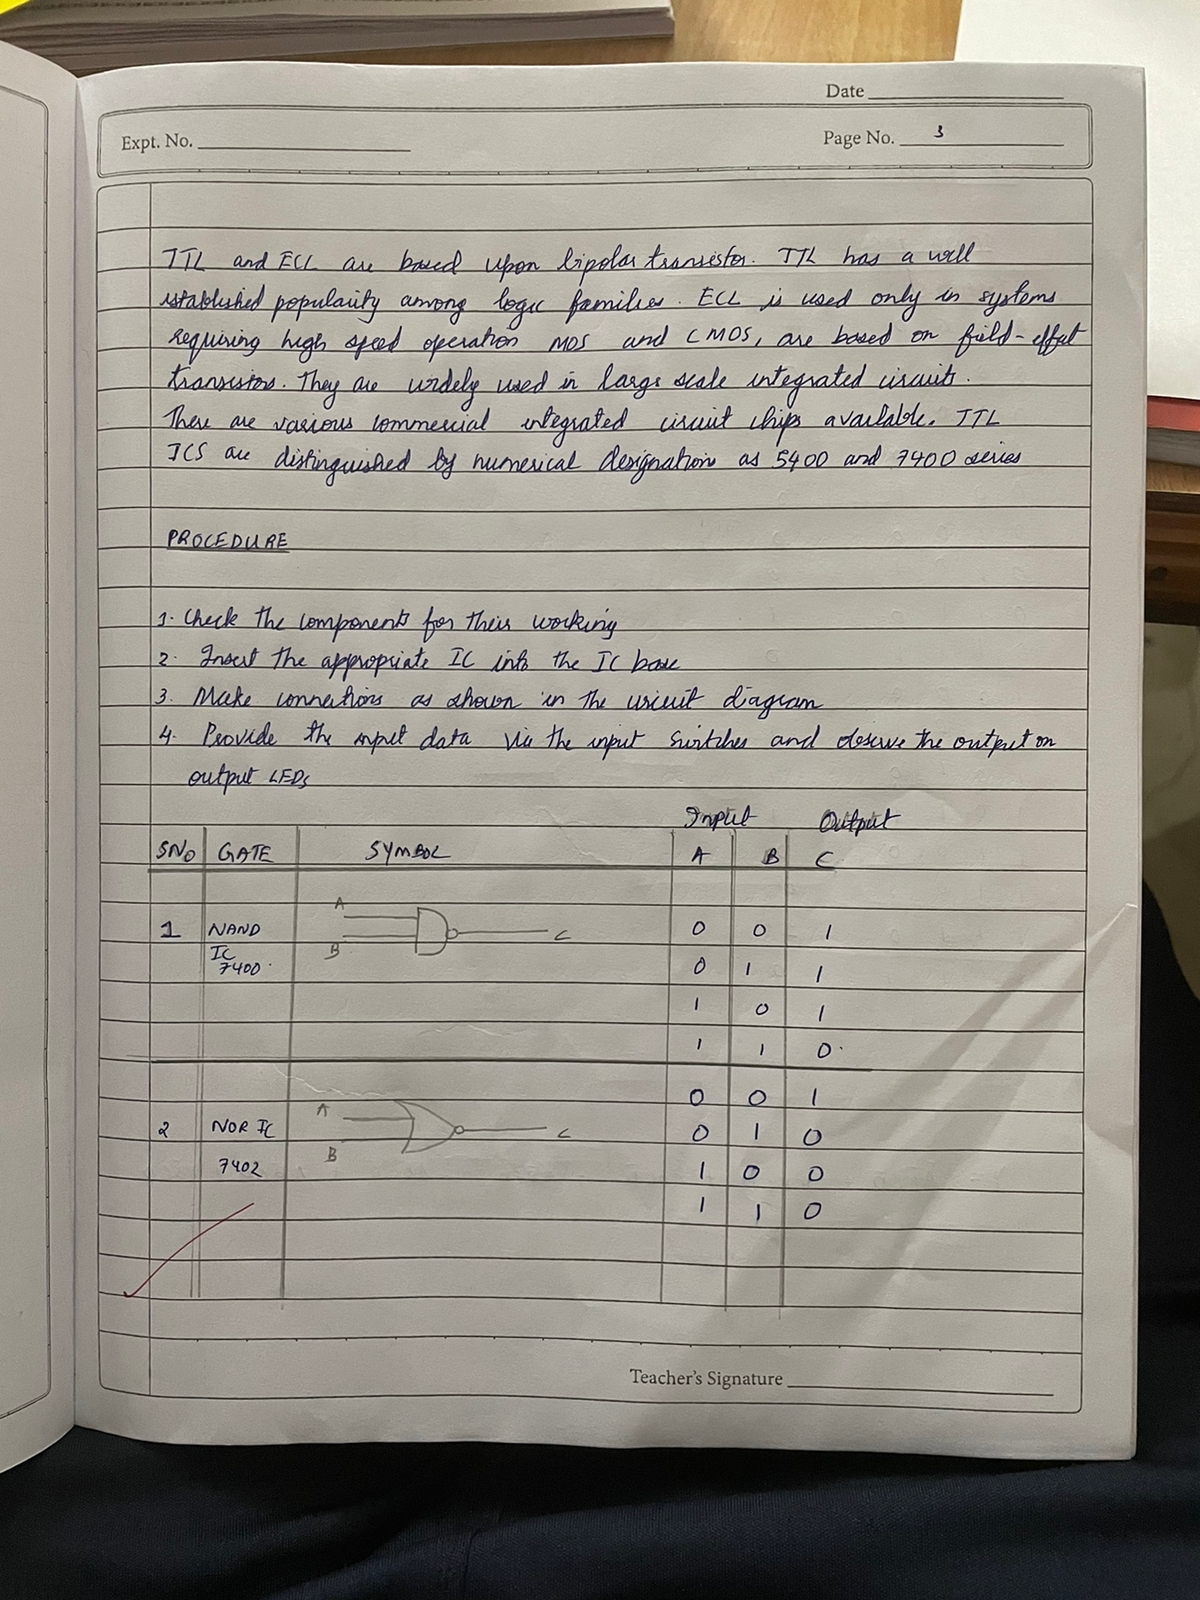 Date
Expt. No.
Page No. 3
TTL and ECL are based upon bipolar transistor. TTL has a well
established popularity among logic families. ECL is used only in systems
requiring high speed operation MOS and CMOS, are based on field-effect
transistors. They are widely used in large scale integrated circuits.
There are various commercial integrated circuit chips available. TTL
ICS are distinguished by numerical designation as 5400 and 7400 series
PROCEDURE
1. Check the components for their working
2. Insert the appropriate IC into the IC base
3. Make connections as shown in the circuit diagram
4. Provide the input data via the input switches and observe the output on
output LEDs
Input Output
SNo GATE SYMBOL A B C
A
1 NAND B C 0 0 1
IC
7400 0 1 1
1 0 1
1 1 0
0 0 1
A
2 NOR IC C 0 1 0
B
7402 1 0 0
1 1 0
Teacher's Signature